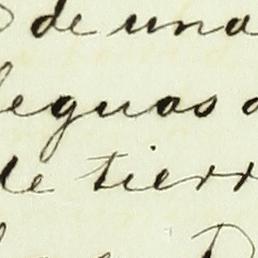 de una
leguas
de tierr